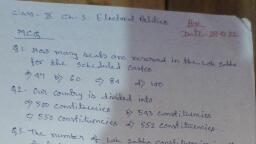 Class- IX Ch-3. Electoral Politics
Date-
MCQ
Q1. How many seats are reserved in the Lok Sabha
for the scheduled castes
a) 47 b) 60 c) 84 d) 100
Q2. Our country is divided into
a) 500 constituencies b) 543 constituencies
c) 550 constituencies d) 552 constituencies
Q3. The number of Lok Sabha